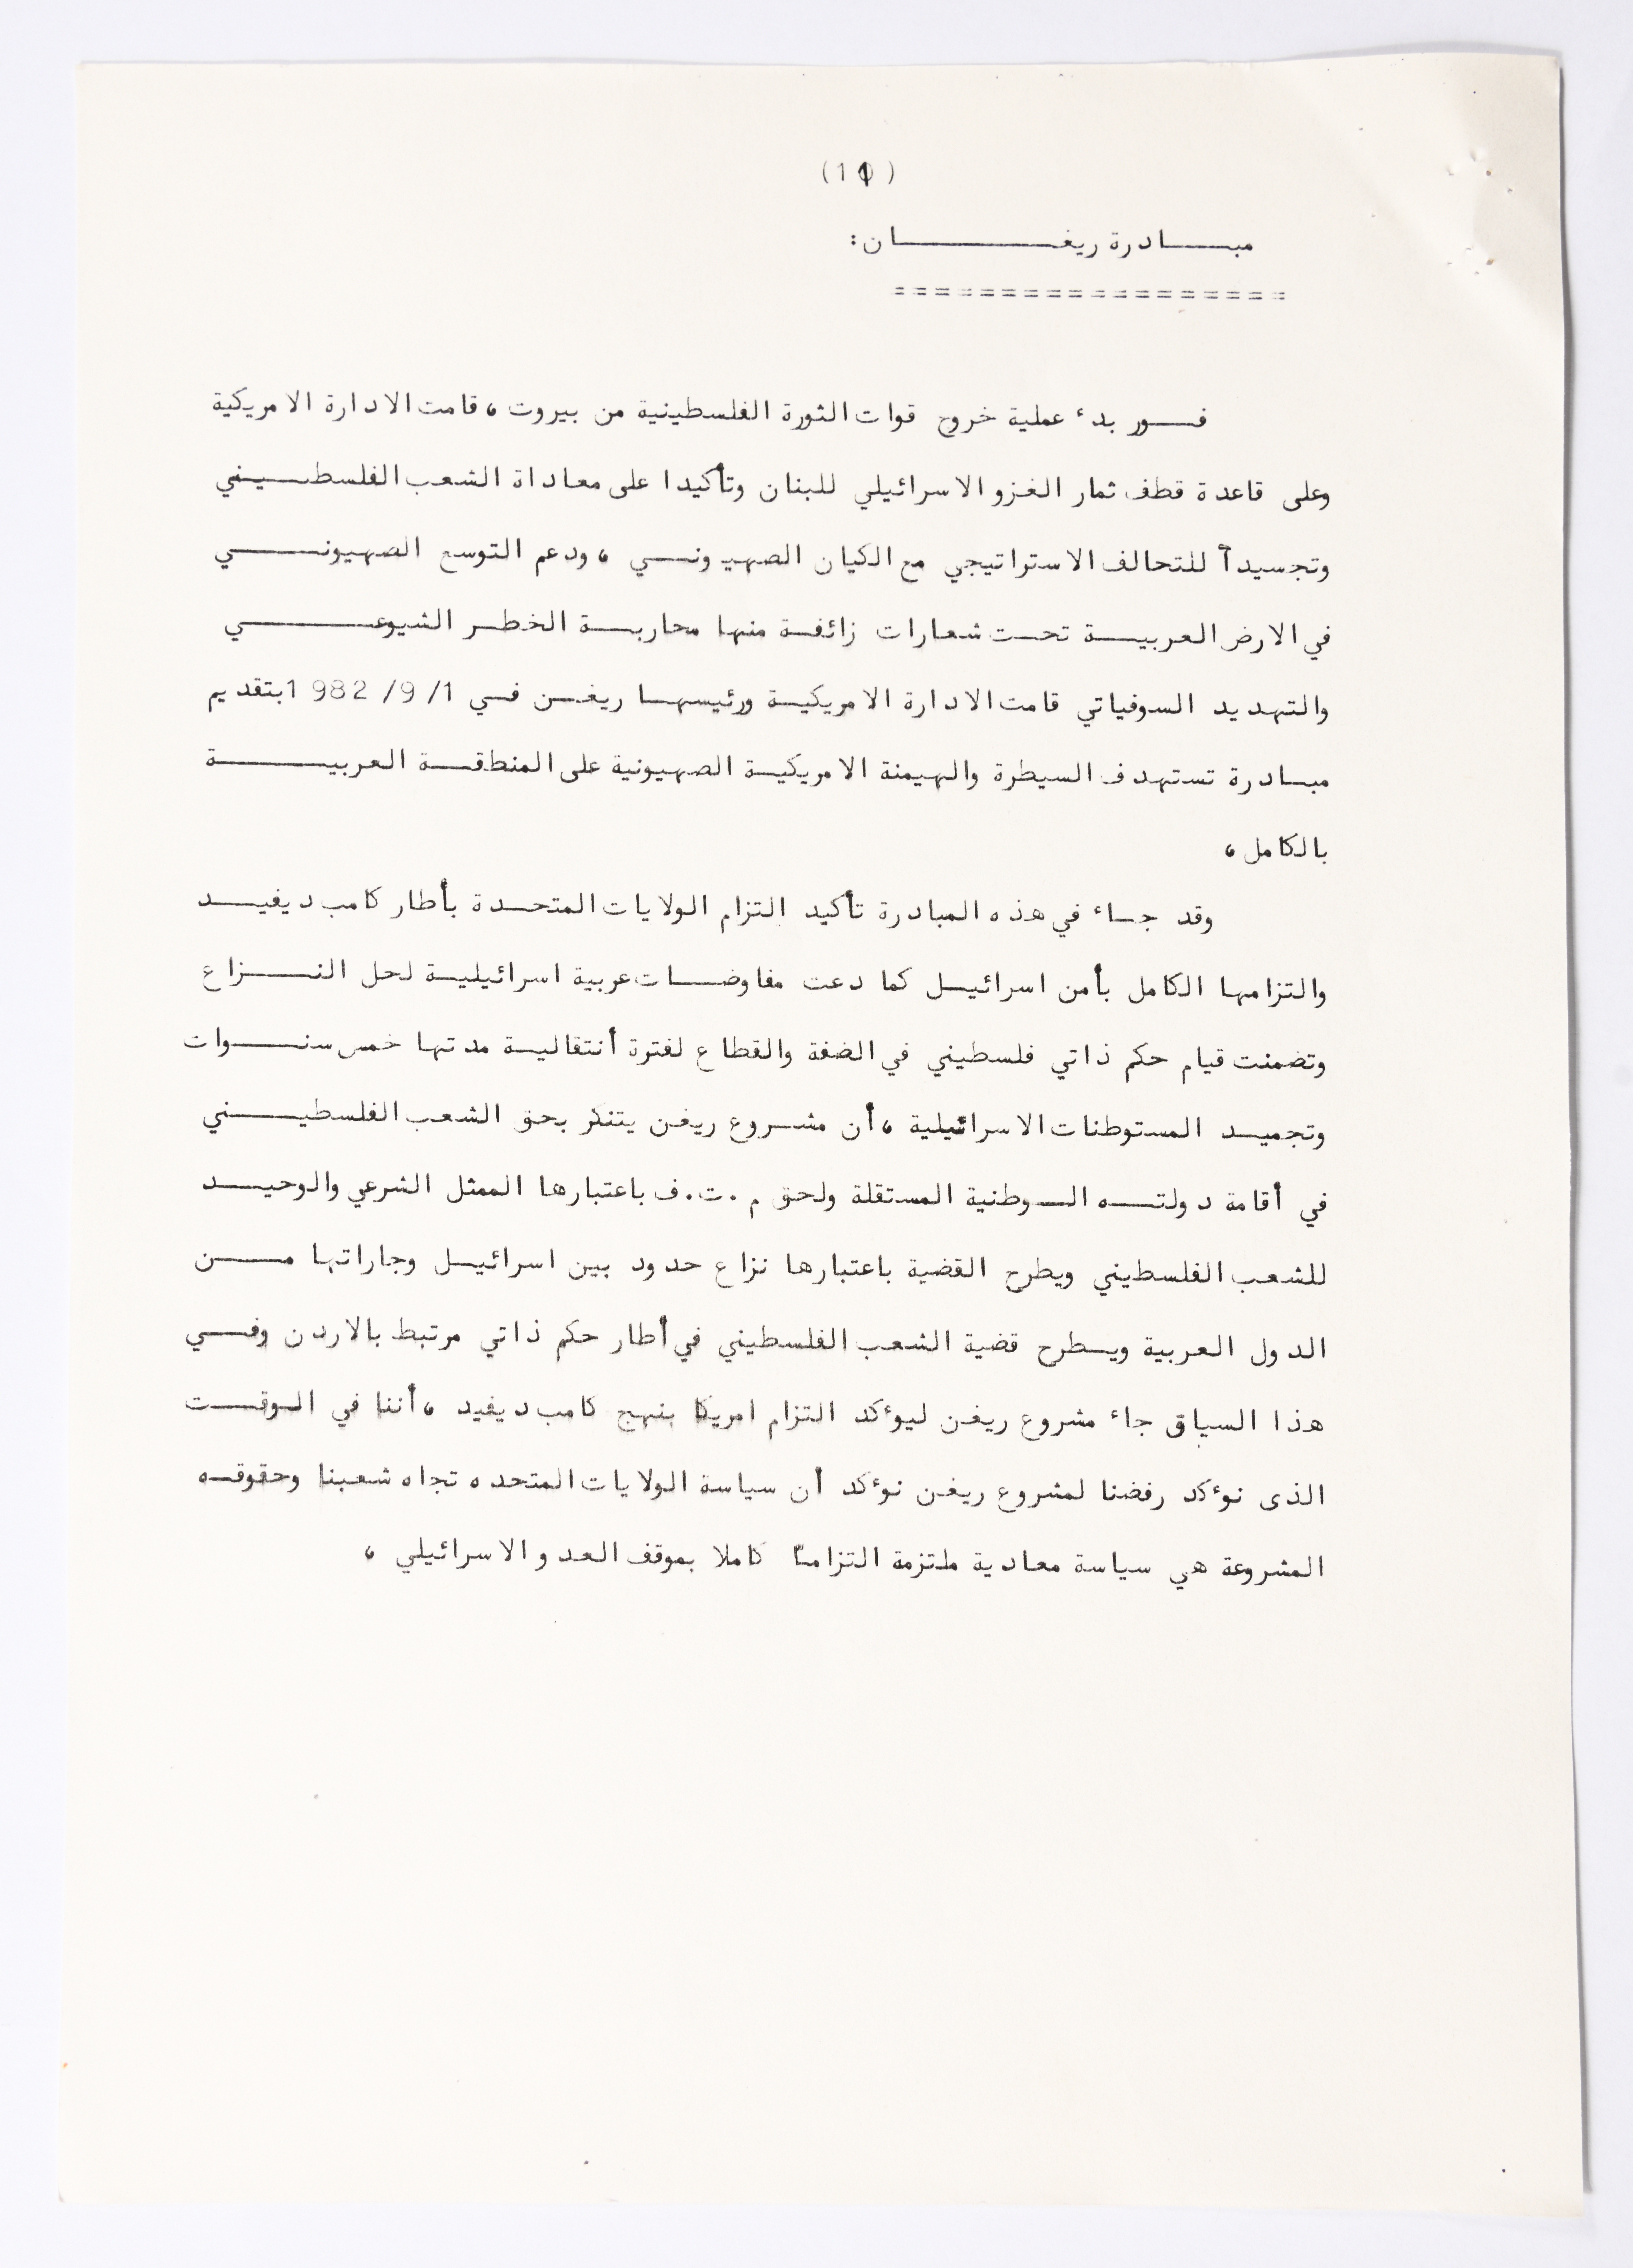 (11)
مبـــادرة ريغـــــــان:
==================
فـــور بدء عملية خروج قوات الثورة الفلسطينية من بيروت، قامت الادارة الامريكية
وعلى قاعدة قطف ثمار الغزو الاسرائيلي للبنان وتأكيدا على معاداة الشعب الفلسطـــيني
وتجسيدأ للتحالف الاستراتيجي مع الكيان الصهيونـــي ، ودعم التوسع الصهيونـــــي
في الارض العربيـــة تحــت شعارات زائفــة منها محاربــة الخطــر الشيوعــــــي
والتهديد السوفياتي قامت الادارة الامريكيــة ورئيسهــا ريغــن فــي 1/ 9/ 1982 بتقديم
مبــادرة تستهدف السيطرة والهيمنة الامريكيــة الصهيونية على المنطقــة العربيـــــة
بالكامل ،
وقد جــاء في هذه المبادرة تأكيد التزام الولايات المتحــدة بأطار كامب ديفيـــد
والتزامها الكامل بأمن اسرائيــل كما دعت مفاوضــات عربية اسرائيليــة لحل النـــزاع
وتضمنت قيام حكم ذاتي فلسطيني في الضفة والقطاع لفترة أنتقاليــة مدتها خمس سنـــوات
وتجميــد المستوطنات الاسرائيلية ، أن مشــروع ريغن يتنكر بحق الشعب الفلسطيـــني
في أقامة دولتـــه الــوطنية المستقلة ولحق م.ت.ف باعتبارها الممثل الشرعي والوحيـــد
للشعب الفلسطيني ويطرح القضية باعتبارها نزاع حدود بين اسرائيــل وجاراتها مـــن
الدول العربية ويــطرح قضية الشعب الفلسطيني في أطار حكم ذاتي مرتبط بالاردن وفـــي
هذا السياق جاء مشروع ريغن ليوءكد التزام امريكا بنهج كامب ديفيد ، أننا في الــوقـــت
الذى نوءكد رفضنا لمشروع ريغن نوءكد أن سياسة الولايات المتحده تجاه شعبنا وحقوقــه
المشروعة هي سياسة معادية ملتزمة التزاما كاملا بموقف العدو الاسرائيلي ،